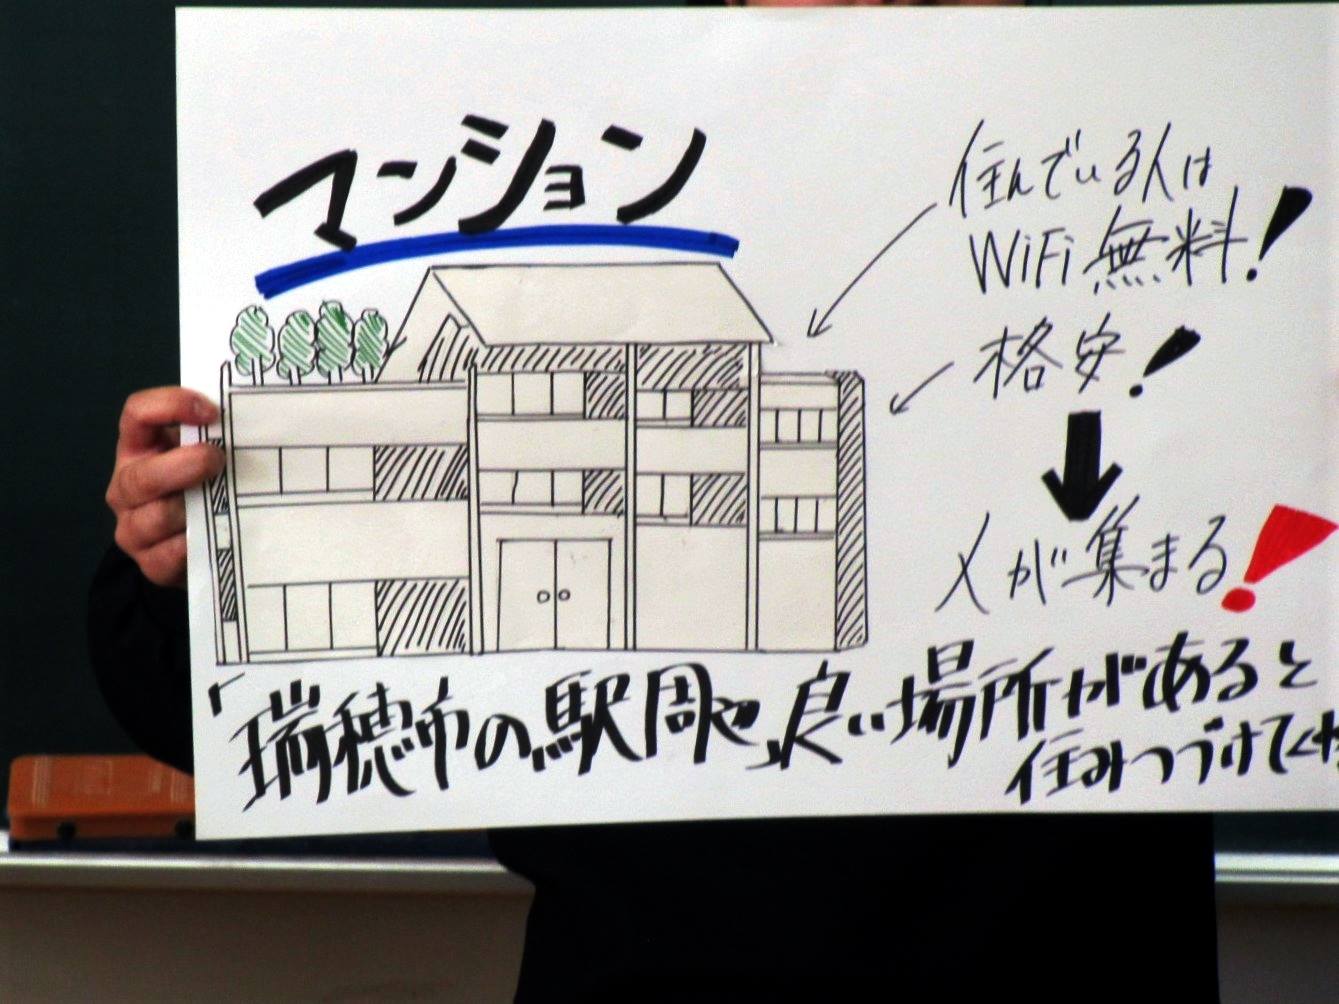 マンション
住んでいる人は
WiFi無料!
格安!
人が集まる!
「瑞穂市の駅周や」良い場所があると
住みつづけて